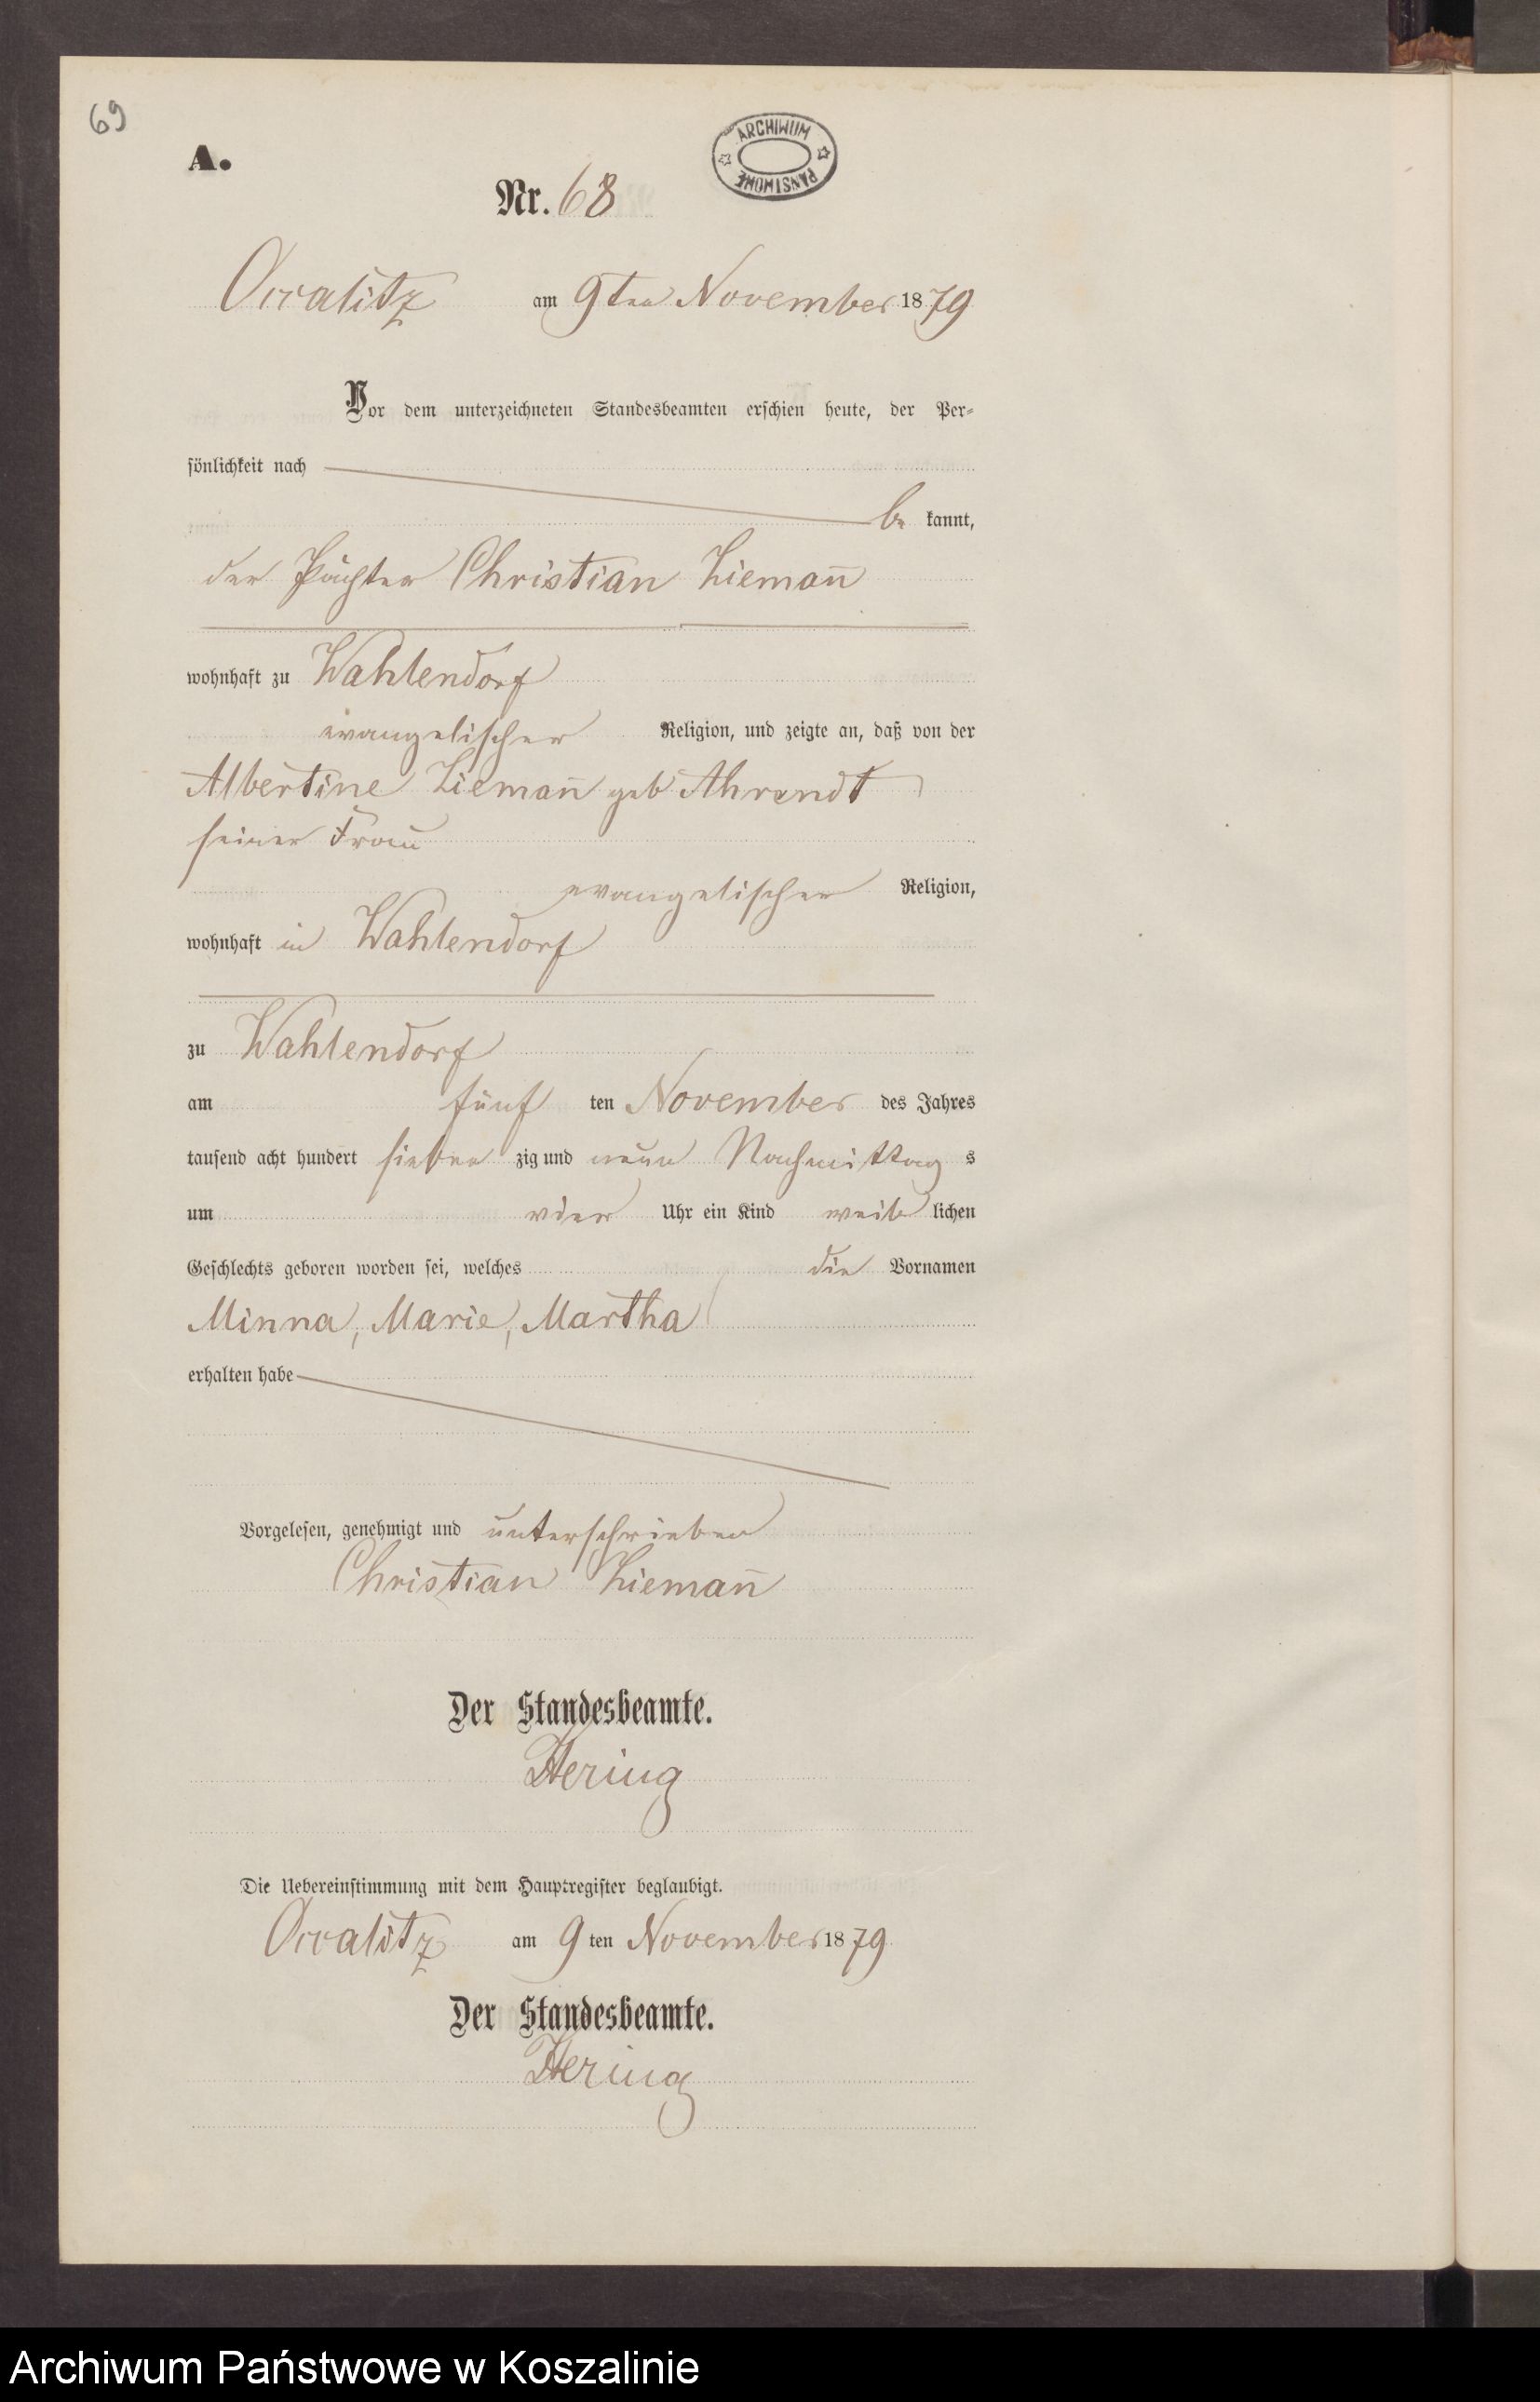 69
A.
ARCHIWUM PAŃSTWOWE
Nr. 68
Occalitz am 9ten November 1879
Vor dem unterzeichneten Standesbeamten erschien heute, der Per-
sönlichkeit nach
be kannt,
der Pächter Christian Ziemañ
wohnhaft zu Wahlendorf
evangelischer Religion, und zeigte an, daß von der
Albertine Ziemañ geb Ahrendt
seiner Frau
evangelischer Religion,
wohnhaft in Wahlendorf
zu Wahlendorf
am fünf ten November des Jahres
tausend acht hundert sieben zig und neun Nachmittag s
um vier Uhr ein Kind weib lichen
Geschlechts geboren worden sei, welches die Vornamen
Minna, Marie, Martha
erhalten habe
Vorgelesen, genehmigt und unterschrieben
Christian Ziemañ
Der Standesbeamte.
Hering
Die Uebereinstimmung mit dem Hauptregister beglaubigt.
Occalitz am 9 ten November 1879
Der Standesbeamte.
Hering
Archiwum Państwowe w Koszalinie